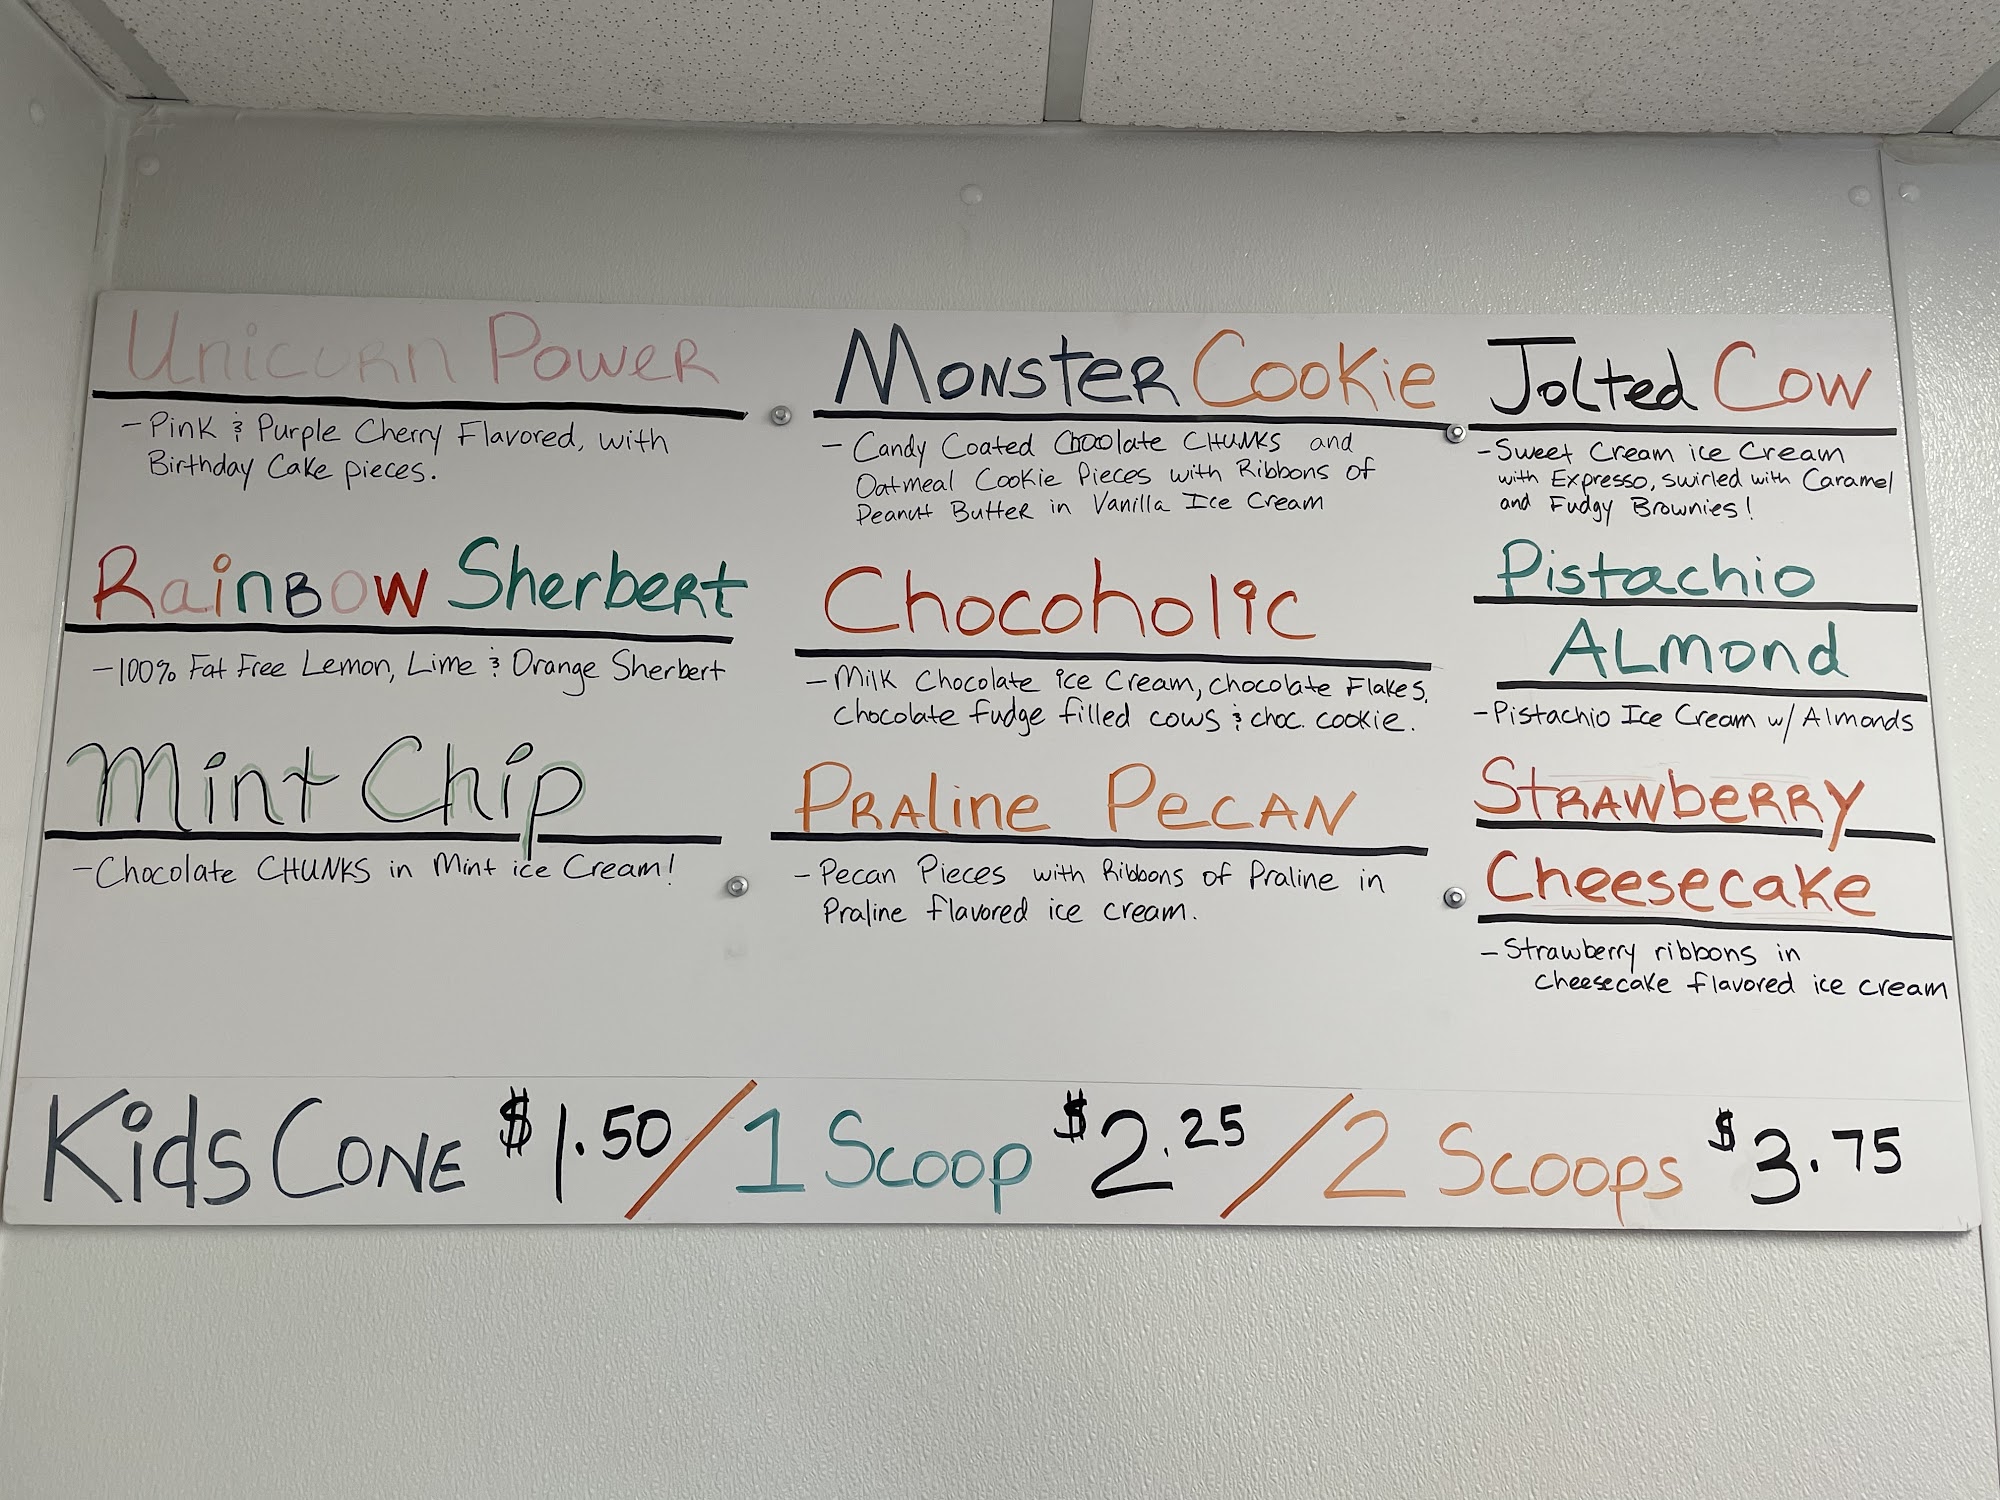 Unicorn Power
- Pink & Purple Cherry Flavored, with
Birthday Cake pieces.
Rainbow Sherbert
- 100% Fat Free Lemon, Lime & Orange Sherbert
Mint Chip
- Chocolate CHUNKS in Mint ice Cream!
Monster Cookie
- Candy Coated Chocolate CHUNKS and
Oatmeal Cookie Pieces with Ribbons of
Peanut Butter in Vanilla Ice Cream
Chocoholic
- Milk Chocolate ice Cream, chocolate Flakes,
chocolate fudge filled cows & choc. cookie.
Praline Pecan
- Pecan Pieces with Ribbons of Praline in
Praline flavored ice cream.
Jolted Cow
- Sweet Cream ice Cream
with Expresso, swirled with Caramel
and Fudgy Brownies!
Pistachio
Almond
- Pistachio Ice Cream w/ Almonds
Strawberry
Cheesecake
- Strawberry ribbons in
cheesecake flavored ice cream
Kids Cone $1.50 / 1 Scoop $2.25 / 2 Scoops $3.75